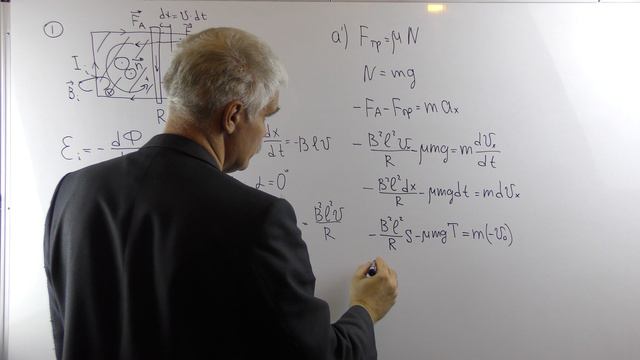 ①
F_A
dx = v·dt
I_i
n
B_i
R
ℰ_i = - dΦ
dx/dt = -Blv
α = 0°
B²l²v/R
a') F_тр = μN
N = mg
- F_A - F_тр = ma_x
- B²l²v_x/R - μmg = m dv_x/dt
- B²l²dx/R - μmgdt = mdv_x
- B²l²/R S - μmgT = m(-v_0)